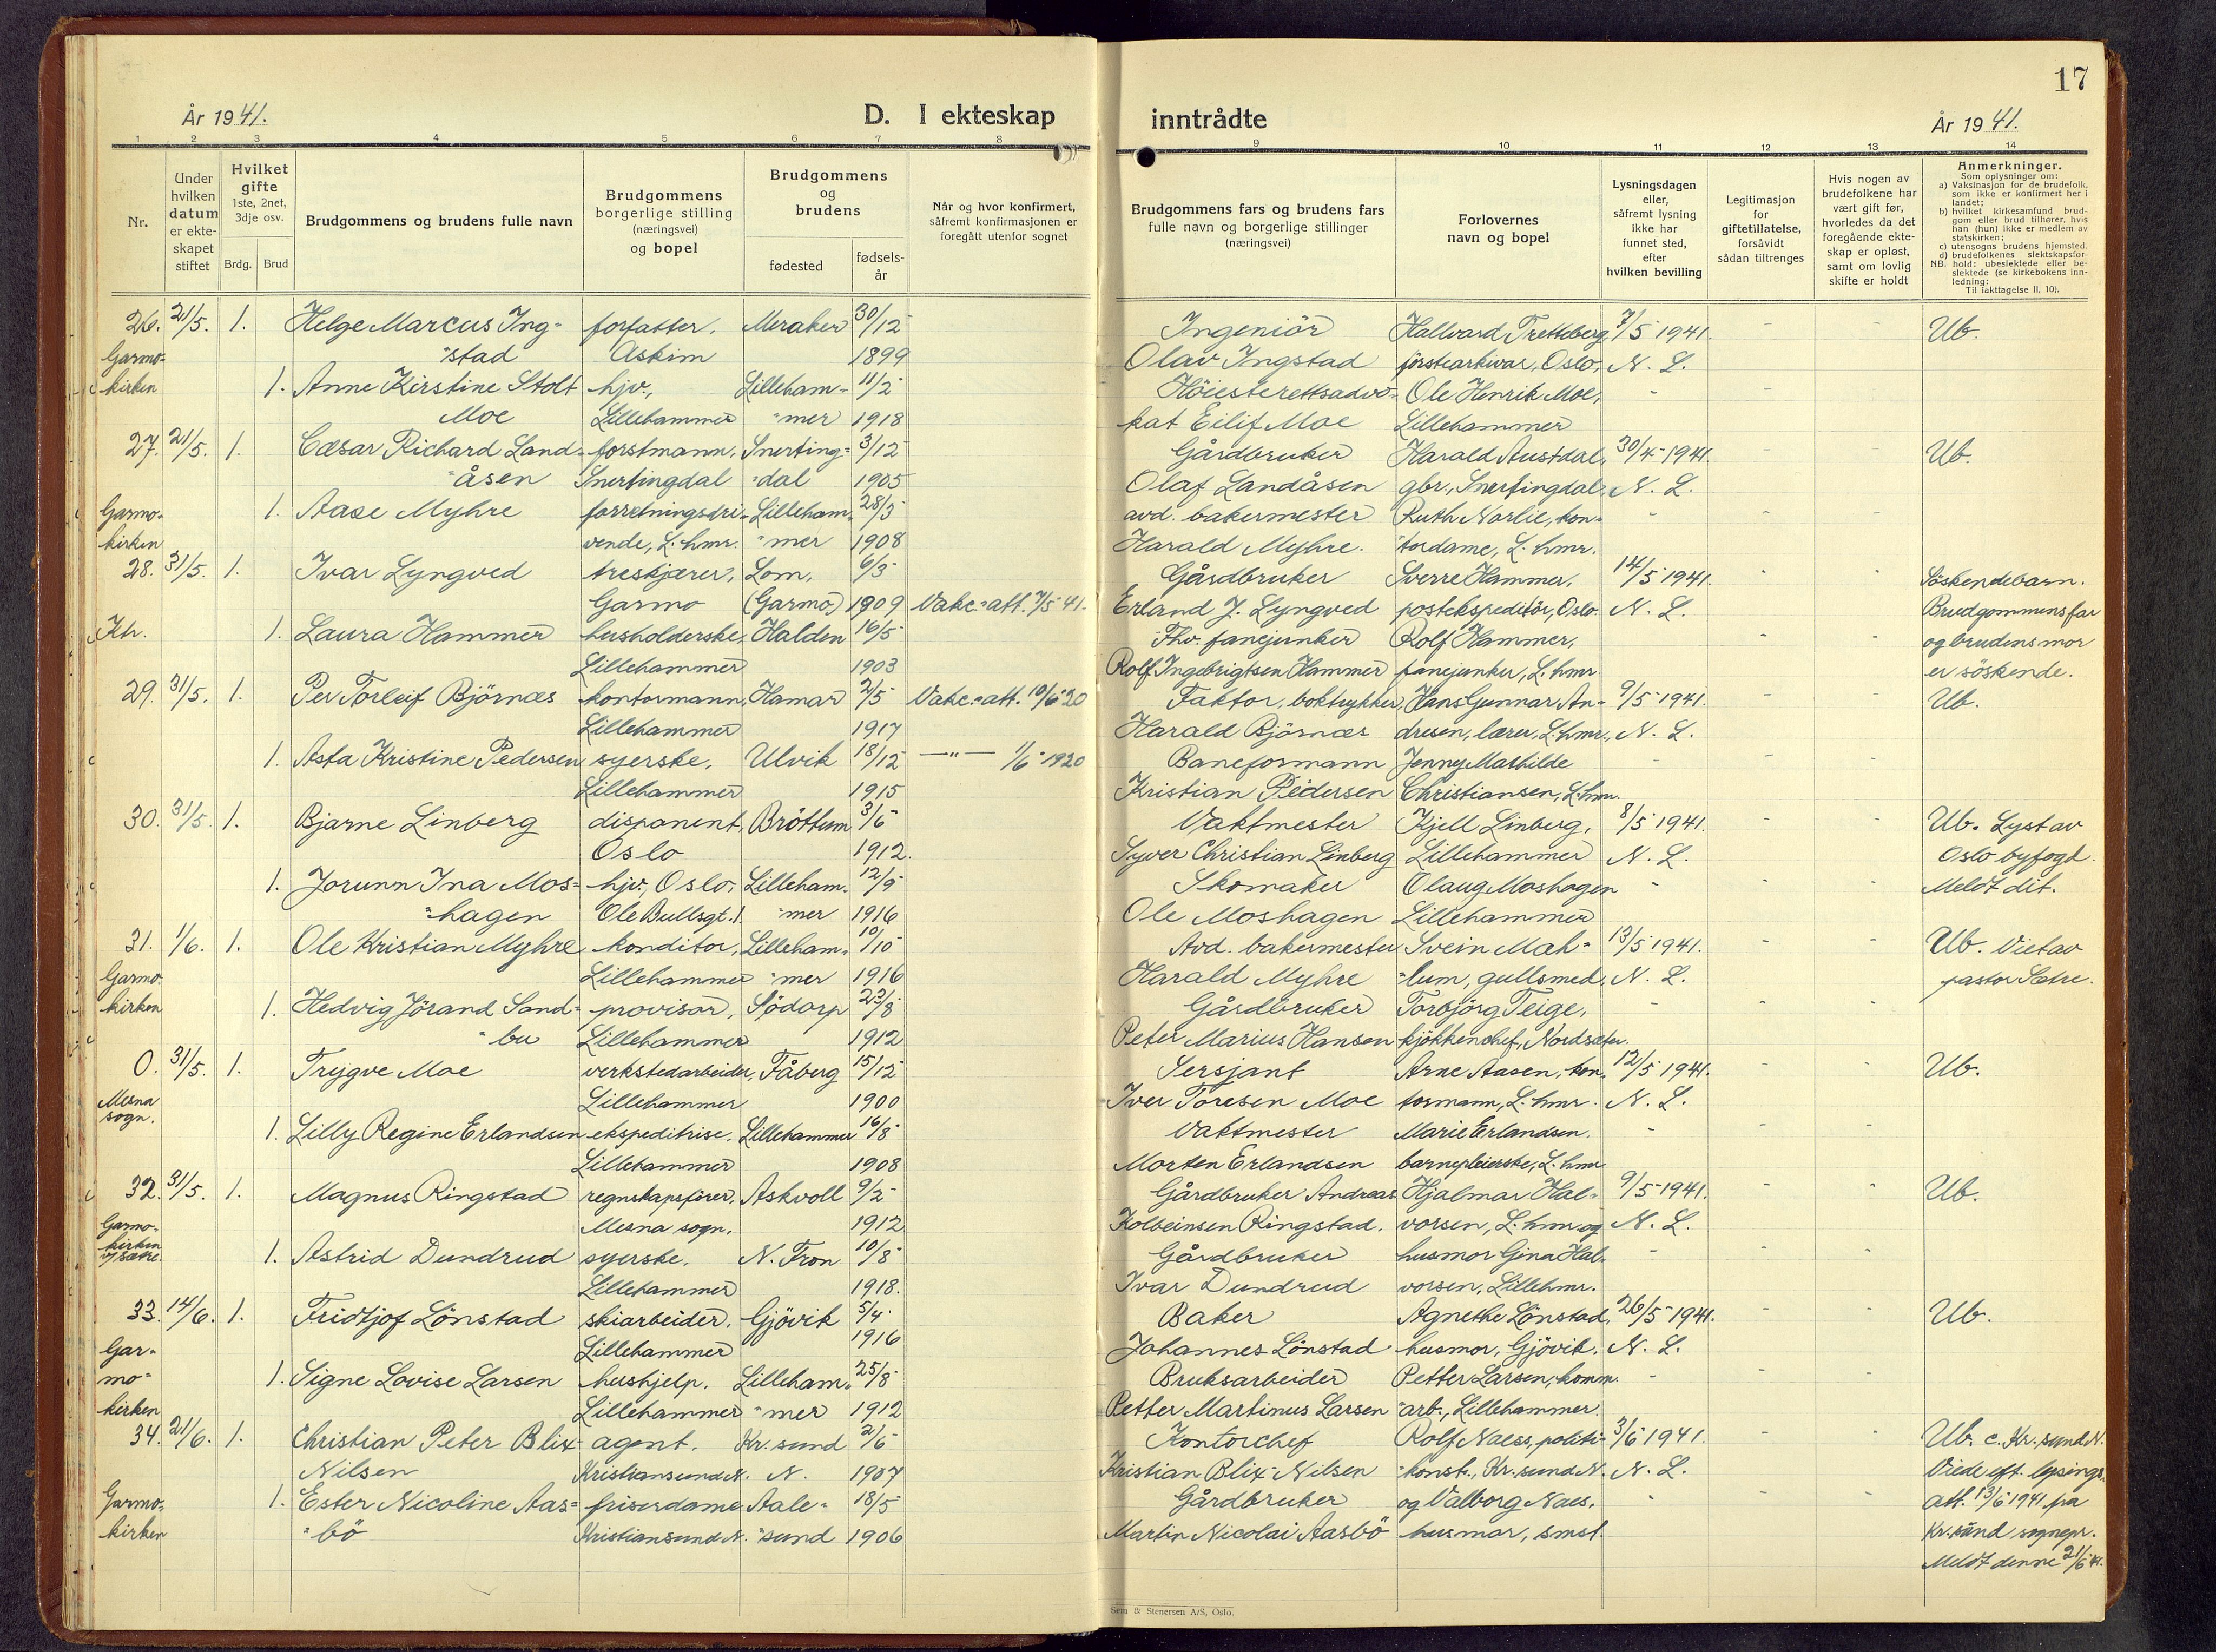 17
År 1941.
D. I ekteskap
inntrådte
År 1941.
1 2 3 4 5 6 7 8 9 10 11 12 13 14
Nr.
Under hvilken datum er ekte-skapet stiftet
Hvilket gifte 1ste, 2net, 3dje osv.
Brdg. Brud
Brudgommens og brudens fulle navn
Brudgommens borgerlige stilling (næringsvei) og bopel
Brudgommens og brudens
fødested
fødsels-år
Når og hvor konfirmert, såfremt konfirmasjonen er foregått utenfor sognet
Brudgommens fars og brudens fars fulle navn og borgerlige stillinger (næringsvei)
Forlovernes navn og bopel
Lysningsdagen eller, såfremt lysning ikke har funnet sted, efter hvilken bevilling
Legitimasjon for giftetillatelse, forsåvidt sådan tiltrenges
Hvis nogen av brudefolkene har vært gift før, hvorledes da det foregående ekte-skap er opløst, samt om lovlig skifte er holdt
Anmerkninger.
Som oplysninger om:
a) Vaksinasjon for de brudefolk, som ikke er konfirmert her i landet;
b) hvilket kirkesamfund brud-gom eller brud tilhører, hvis han (hun) ikke er medlem av statskirken;
c) utensogns brudens hjemsted.
d) brudefolkenes slektskapsfor-hold: ubeslektede eller be-slektede (se kirkebokens inn-ledning:
NB.
Til iakttagelse II. 10).
26. 21/5. 1. Helge Marcus Ing- forfatter. Meraker 30/12 Ingeniör Hallvard Trætteberg, 7/5 1941. - - Ub.
Garmo- "stad Askim 1899 Olav Ingstad förstearkivar, Oslo, N. L.
kirken 1. Anne Kirstine Stolt hjv., Lilleham- 11/2 Höiesterettsadvo- Ole Henrik Moe, -
Moe Lillehammer "mer 1918 kat Eilif Moe Lillehammer
27. 21/5. 1. Cæsar Richard Land- forstmann. Snerting- 3/12 Gårdbruker Harald Austdal, 30/4-1941. - - Ub.
"åsen Snertingdal "dal 1905 Olaf Landåsen gbr., Snertingdal. N. L.
Garmo- 1. Aase Myhre forretningsdri- Lilleham- 28/3 avd. bakermester Ruth Norlie, kon- - - -
kirken vende, L.hmr. "mer 1908 Harald Myhre. "tordame, L.hmr.
28. 31/5. 1. Ivar Lyngved treskjærer, Lom, 6/3 Gårdbruker Sverre Hammer, 14/5 1941. - - Söskendebarn.
Garmo (Garmo) 1909 Vakc.att. 7/5 41. Erland J. Lyngved postekspeditör, Oslo. N. L. Brudgommens far
Kh. 1. Laura Hammer husholderske, Halden 16/5 Fhv. fanejunker Rolf Hammer, - - og brudens mor
Lillehammer 1903 Rolf Ingebrigtsen Hammer fanejunker, L.hmr er söskende.
29. 31/5. 1. Per Torleif Björnæs kontormann, Hamar 2/5 Vakc.att. 10/6 20 Faktor, boktrykker, Hans Gunnar An- 9/5-1941. - - Ub.
Lillehammer 1917 Harald Björnæs dresen, lærer, L.hmr., N. L.
1. Asta Kristine Pedersen syerske, Ulvik 18/12 —"— 1/6-1920 Baneformann Jenny Mathilde - - -
Lillehammer 1915 Kristian Pedersen Christiansen, L.hmr.
30. 31/5. 1. Bjarne Linberg disponent, Bröttum 3/6 Vaktmester Kjell Linberg, 8/5 1941. - - Ub. Lyst av
Oslo 1912. Syver Christian Linberg Lillehammer N. L. Oslo byfogd.
1. Jorunn Ina Mos- hjv., Oslo, Lilleham- 12/9 Skomaker Olaug Moshagen - - - Meldt dit.
"hagen Ole Bullsgt. 1. "mer 1916 Ole Moshagen Lillehammer
31. 1/6. 1. Ole Kristian Myhre konditor, Lilleham- 10/10 Avd. bakermester Svein Mæh- 13/5 1941. - - Ub. Viet av
Garmo Lillehammer "mer 1916 Harald Myhre "lum, gullsmed, N. L. pastor Sætre.
kirken 1. Hedvig Jörand Sand- provisor, Södorp 23/8 Gårdbruker Torbjörg Teige, - - -
"bu Lillehammer 1912 Peter Marius Hansen kjökkenchef, Nordsæter.
0. 31/5. 1. Trygve Moe verkstedarbeider, Fåberg 15/12 Sersjant Arne Aasen, kon- 12/5 1941. - - Ub.
Mesna Lillehammer 1900 Iver Toresen Moe tormann, L.hmr. N. L.
sogn. 1. Lilly Regine Erlandsen ekspeditrise. Lillehammer 16/8 Vaktmester Marie Erlandsen. - - -
Lillehammer 1908 Morten Erlandsen barnepleierske, L.hmr
32. 31/5. 1. Magnus Ringstad regnskapsfører. Askvoll 9/2 Gårdbruker Andreas Hjalmar Hal- 9/5-1941. - - Ub.
Garmo- Mesna sogn. 1912 Kolbeinsen Ringstad. vorsen, L.hmr og N. L.
kirken
v/ sætre. 1. Astrid Dundrud syerske. N. Fron 10/8 Gårdbruker husmor Gina Hal- - - -
Lillehammer 1918. Ivar Dundrud vorsen, Lillehmr.
33. 14/6. 1. Fridtjof Lönstad skiarbeider. Gjövik 5/4 Baker Agnethe Lönstad, 26/5-1941. - - Ub.
Gar- Lillehammer 1916 Johannes Lönstad husmor, Gjövik. N. L.
mo- 1. Signe Lovise Larsen hushjelp. Lilleham- 25/8 Bruksarbeider Petter Larsen, komm. - - -
kirken Lillehammer "mer 1912 Petter Martinus Larsen "arb., Lillehammer.
34. 21/6. 1. Christian Peter Blix- agent. Kr.sund 2/6 Kontorchef Rolf Naess, politi- 3/6 1941. - - Ub. c. Kr.sund N.
Nilsen Kristiansund N. N. 1907 Kristian Blix-Nilsen "konst., Kr.sund N. N. L. Viede eft. lysings-
Garmo- 1. Ester Nicoline Aas- friserdame Aale- 18/5 Gårdbruker og Valborg Naes, - - - att. 13/6 1941 fra
kirken "bö Kristiansund N. "sund 1906 Martin Nicolai Aasbö husmor, smst. Kr.sund sognepr.
Meldt denne 21/6 41.
Sem & Stenersen A/S, Oslo.